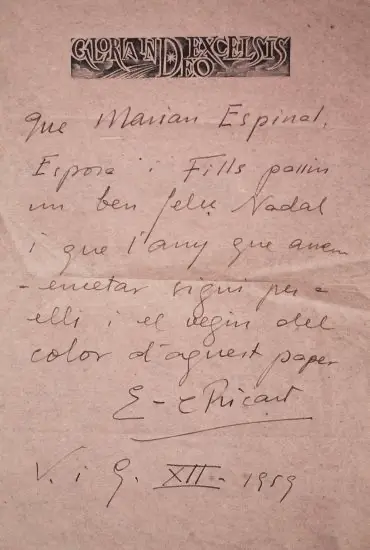 GLORIA IN EXCELSIS
DEO
Que Marian Espinal,
Esposa i Fills passin
un ben feliç Nadal
i que l'any que anem
-encetar sigui per a
ells i el vegin del
color d'aquest paper
E-C Ricart
V. i G. XII - 1959